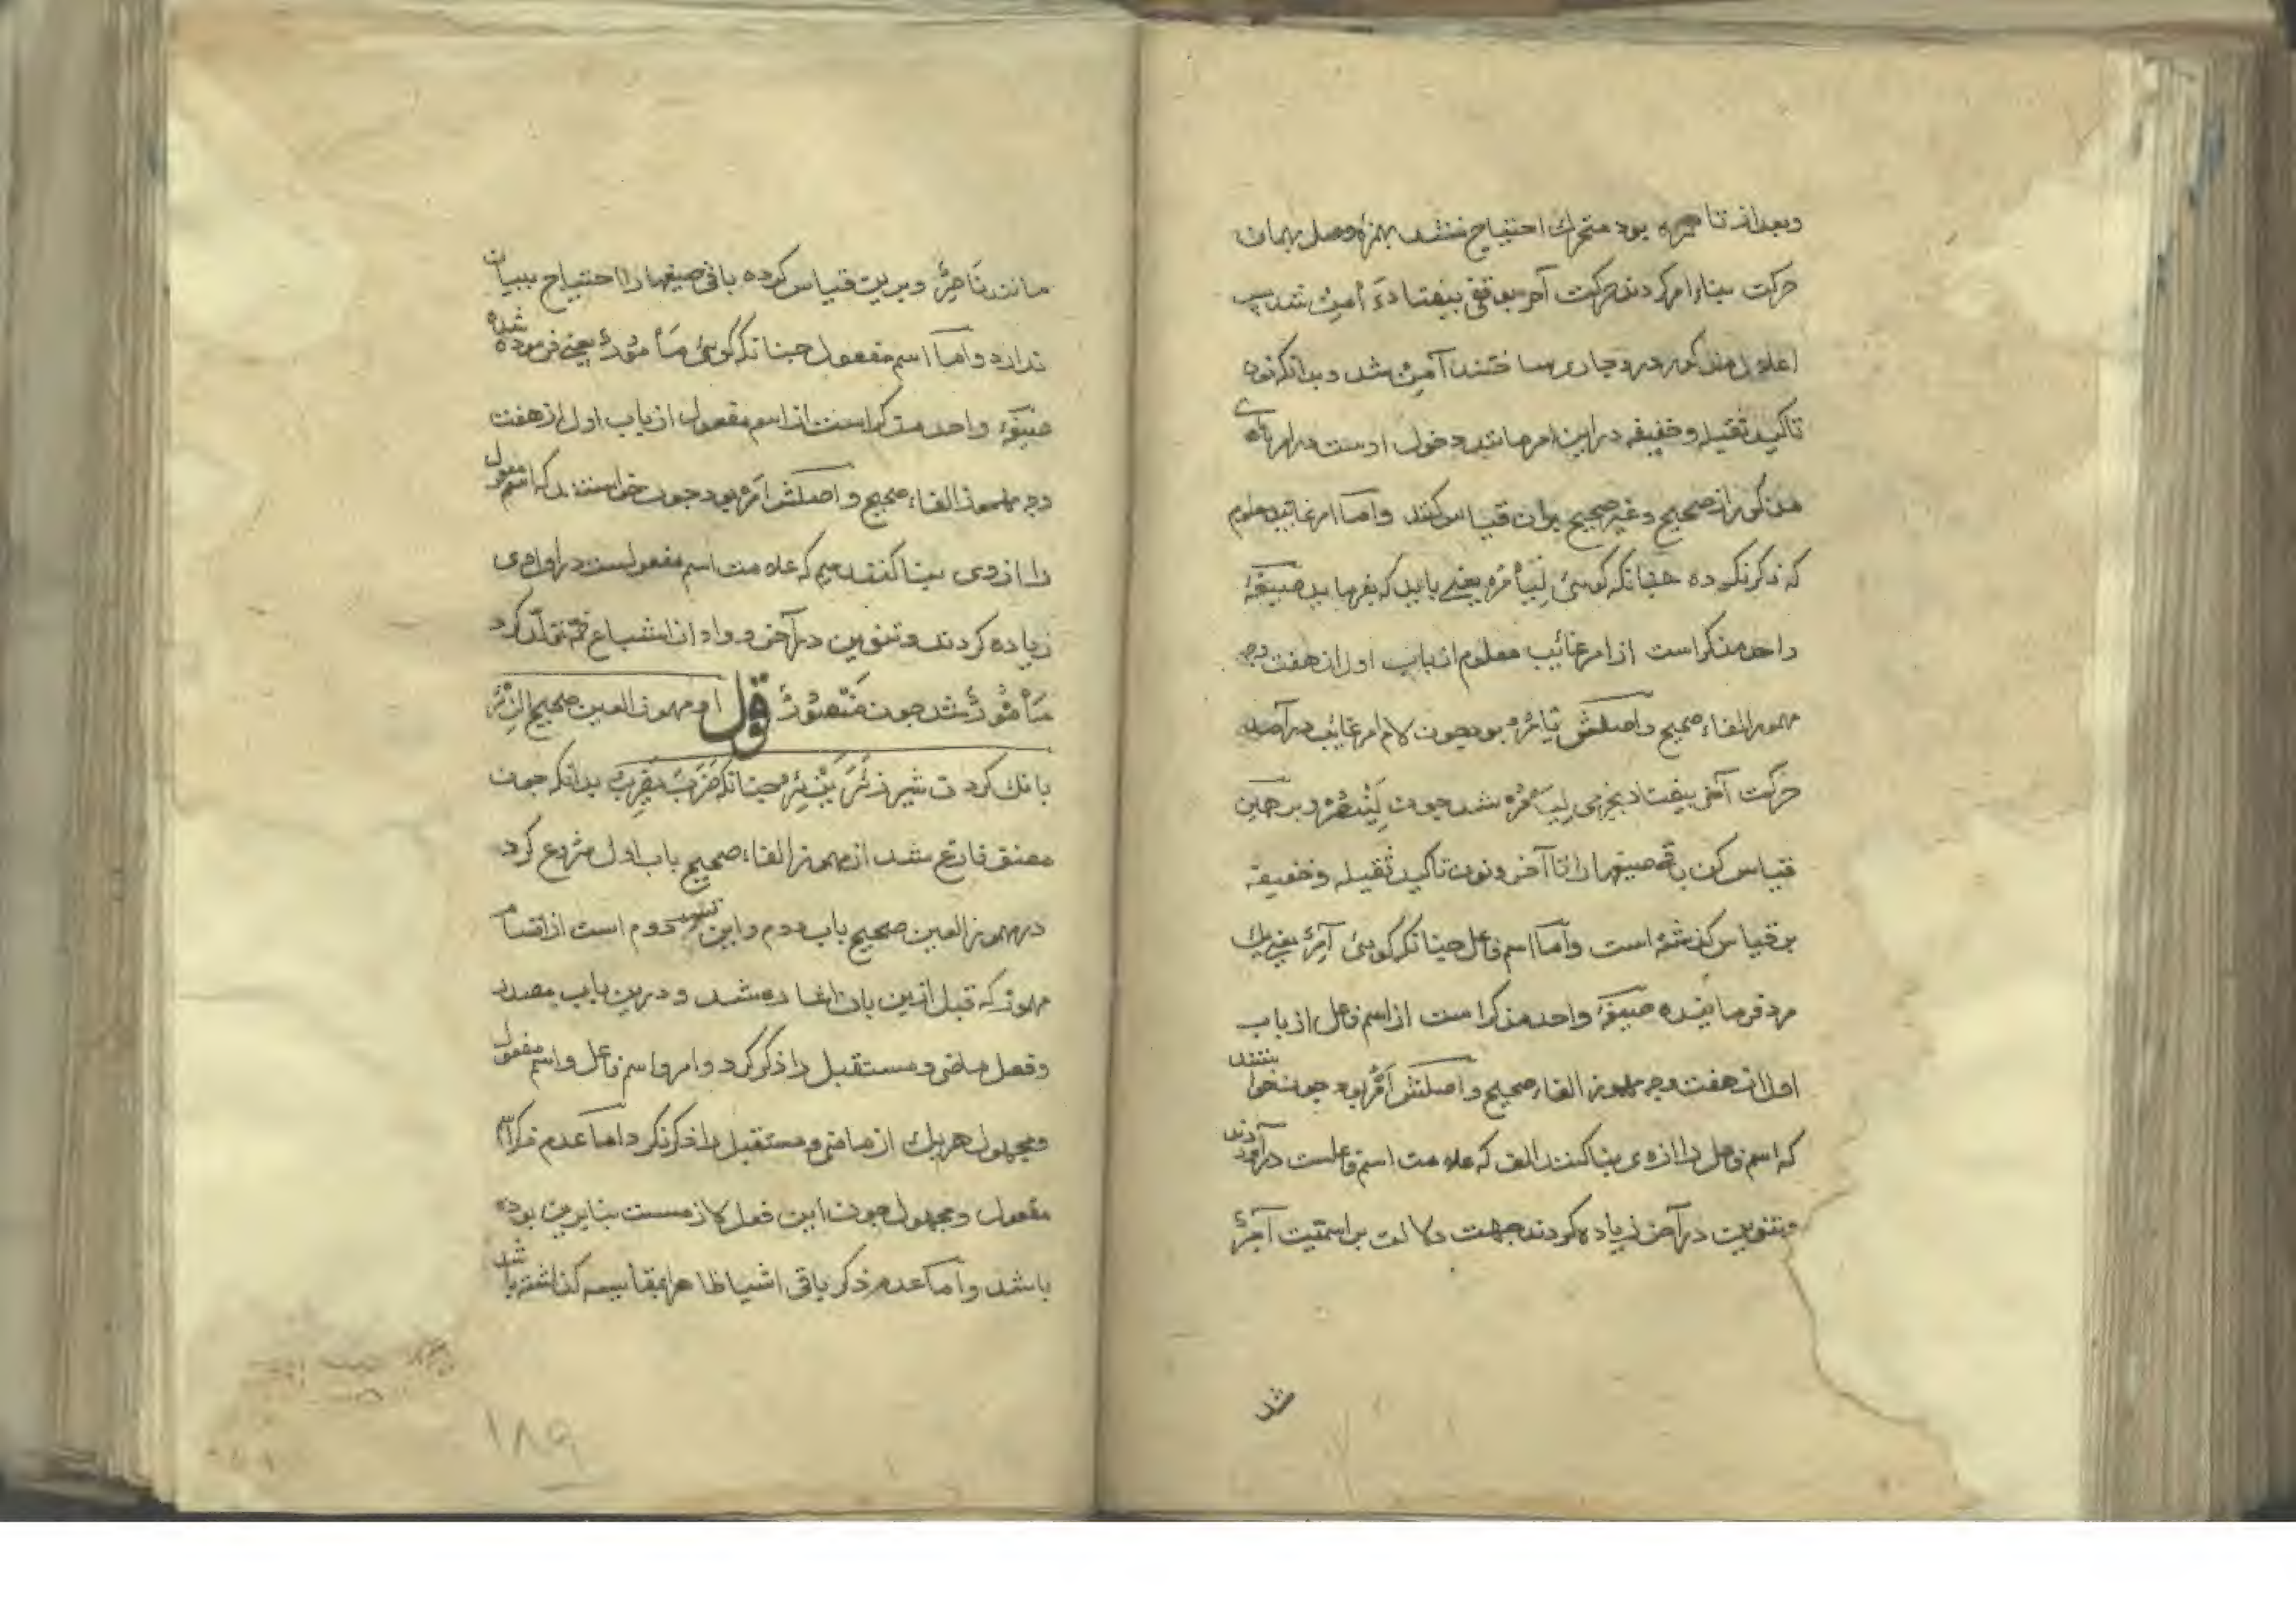 وبعد از تا همزه بود متحرك احتیاج نشد بهمزه وصل بهمان
حرکت بناء امر کردند حرکت آخر بوقفی بیفتاد ءَأمِنْ شد پس
اعلال مذکور درو جاری ساختند آمِنْ شد و بدانکه نون
تاکید ثقیله و خفیفه درین امر مانند دخول اوست در امرهای
مذکور از صحیح و غیر صحیح بران قیاس کنند و اما امر غایب معلوم
که ذکر نکرده چنانکه گوئی لِیَأْمُرْ یعنی باید که بفرماید صیغهٔ
واحد مذکر است از امر غائب معلوم از باب اول از هفت وجه
مهموز الفاء صحیح و اصلش یَأمُرُ بود چون لام امر غایب درآمد
حرکت آخر بیفتاد بجزمی لِیَأْمُرْ شد چون لِیَنْصُرْ و بر همین
قیاس کن باقی صیغها را تا آخر و نون تاکید ثقیله و خفیفه
بر قیاس گذشته است و اما اسم فاعل چنانکه گوئی آمِرٌ یعنی یك
مرد فرماینده صیغهٔ واحد مذکر است از اسم فاعل از باب
اول از هفت وجه مهموز الفاء صحیح و اصلش اَمْرٌ بود چون خواستند
که اسم فاعل را از وی بنا کنند الف که علامت اسم فاعلست درآوردند
و تنوین در آخر زیاده کردند جهت دلالت بر اسمیّت آمِرٌ
شد
مانند نَاصِرٌ و برین قیاس کرده باقی صیغها را احتیاج ببیان
ندارد و اما اسم مفعول چنانکه گوئی مَأْمُورٌ یعنی فرموده شده
صیغهٔ واحد مذکر است از اسم مفعول از باب اول از هفت
وجه مهموز الفاء صحیح و اصلش اَمْرٌ بود چون خواستند که اسم مفعول
را از وی بنا کنند میم که علامت اسم مفعولست در اول وی
زیاده کردند و تنوین در آخر و واو از اشباع ضمّه تولّد کرد
مَأْمُورٌ شد چون مَنْصُورٌ قول او مهموز العین صحیح الزَّئْرُ
بانك کردن شیر زَئَرَ یَزْئِرُ چنانکه ضَرَبَ یَضْرِبُ بدانکه چون
مصنف فارغ شد از مهموز الفاء صحیح باب اول شروع کرد
در مهموز العین صحیح باب دوم و این قسم دوم است از اقسام
مهموز که قبل ازین بان ایما ده شد و درین باب مصدر
و فعل ماضی و مستقبل را ذکر کرد و امر و اسم فاعل و اسم مفعول
و مجهول هریك از ماضی و مستقبل را ذکر نکرد اما عدم ذکر اسم
مفعول و مجهول چون این فعل لازمست بنابرین بوده
باشد و اما عدم ذکر باقی اشیا ظاهرا بمقایسه گذاشته باشد
۱۸۹